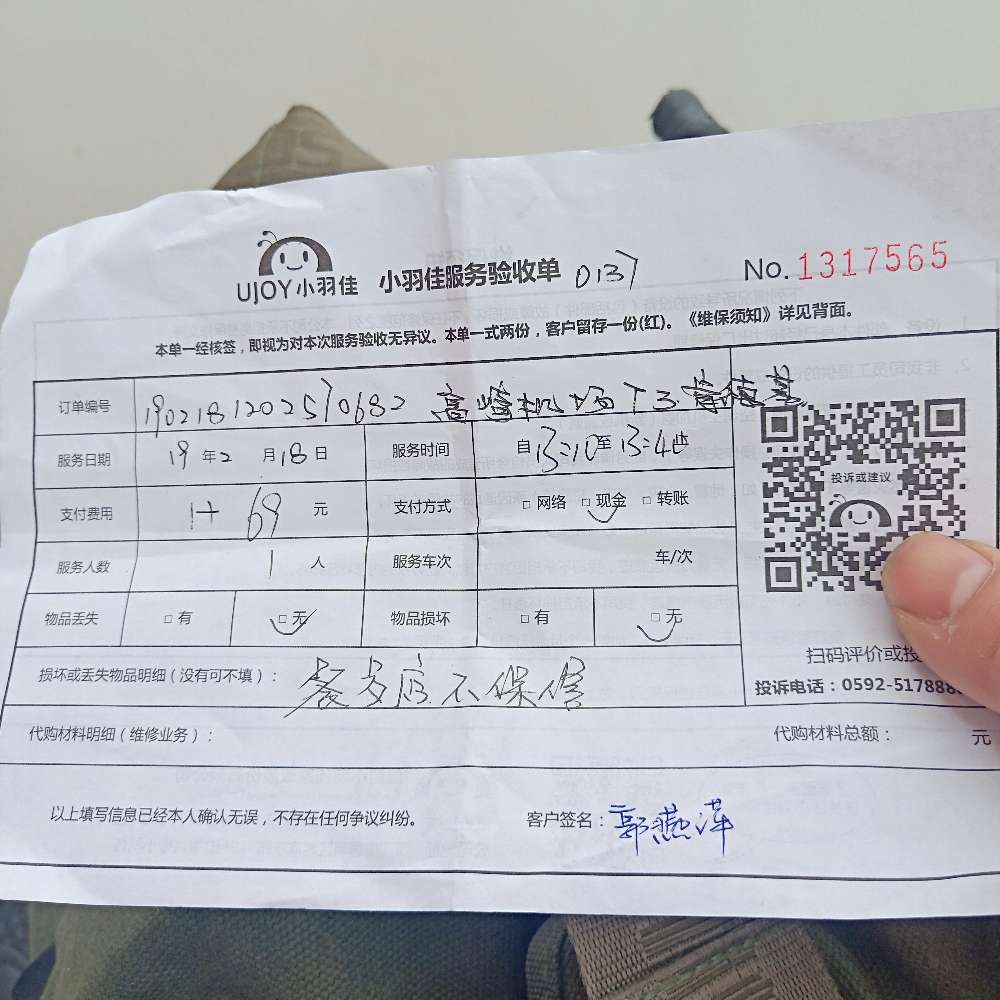 UJOY小羽佳 小羽佳服务验收单 0137 No. 1317565
本单一经核签，即视为对本次服务验收无异议。本单一式两份，客户留存一份(红)。《维保须知》详见背面。
订单编号 1902181202570682 高崎机场T3
服务日期 19 年 2 月 18 日 服务时间 自 13:10 至 13:40 止
支付费用 1+69 元 支付方式 □ 网络 □ 现金 □ 转账
服务人数 1 人 服务车次 车/次
物品丢失 □ 有 □ 无 物品损坏 □ 有 □ 无
损坏或丢失物品明细（没有可不填）： 不保修
代购材料明细（维修业务）： 代购材料总额： 元
以上填写信息已经本人确认无误，不存在任何争议纠纷。 客户签名：郭燕萍
投诉或建议
扫码评价或投
投诉电话：0592-517888